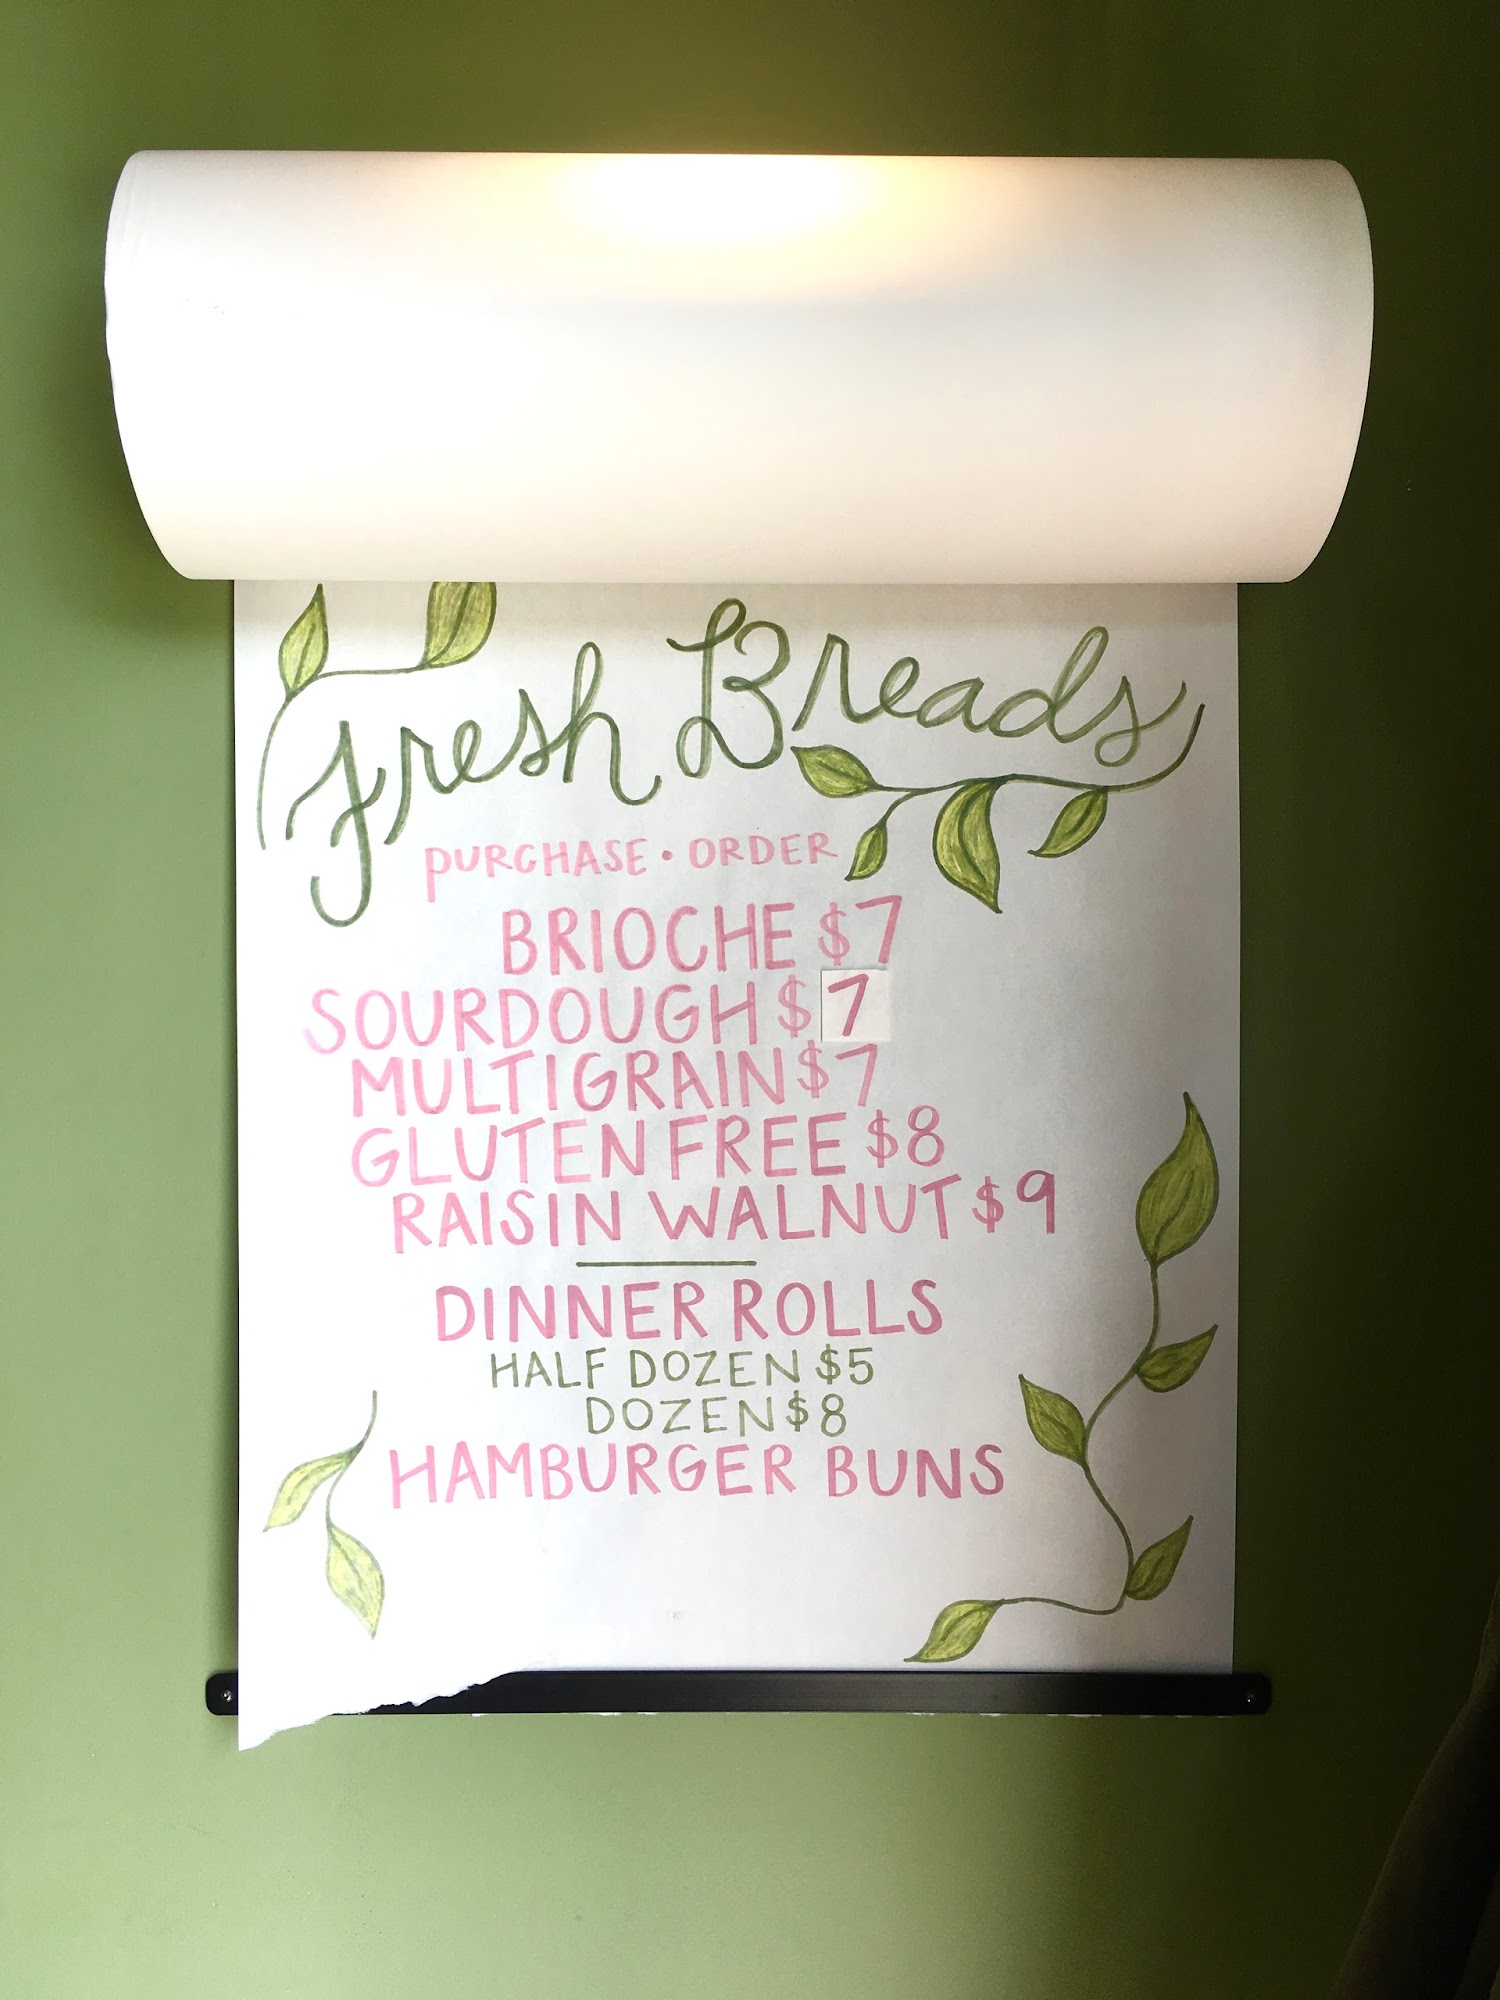 Fresh Breads
PURCHASE • ORDER
BRIOCHE $7
SOURDOUGH $7
MULTIGRAIN $7
GLUTEN FREE $8
RAISIN WALNUT $9
DINNER ROLLS
HALF DOZEN $5
DOZEN $8
HAMBURGER BUNS